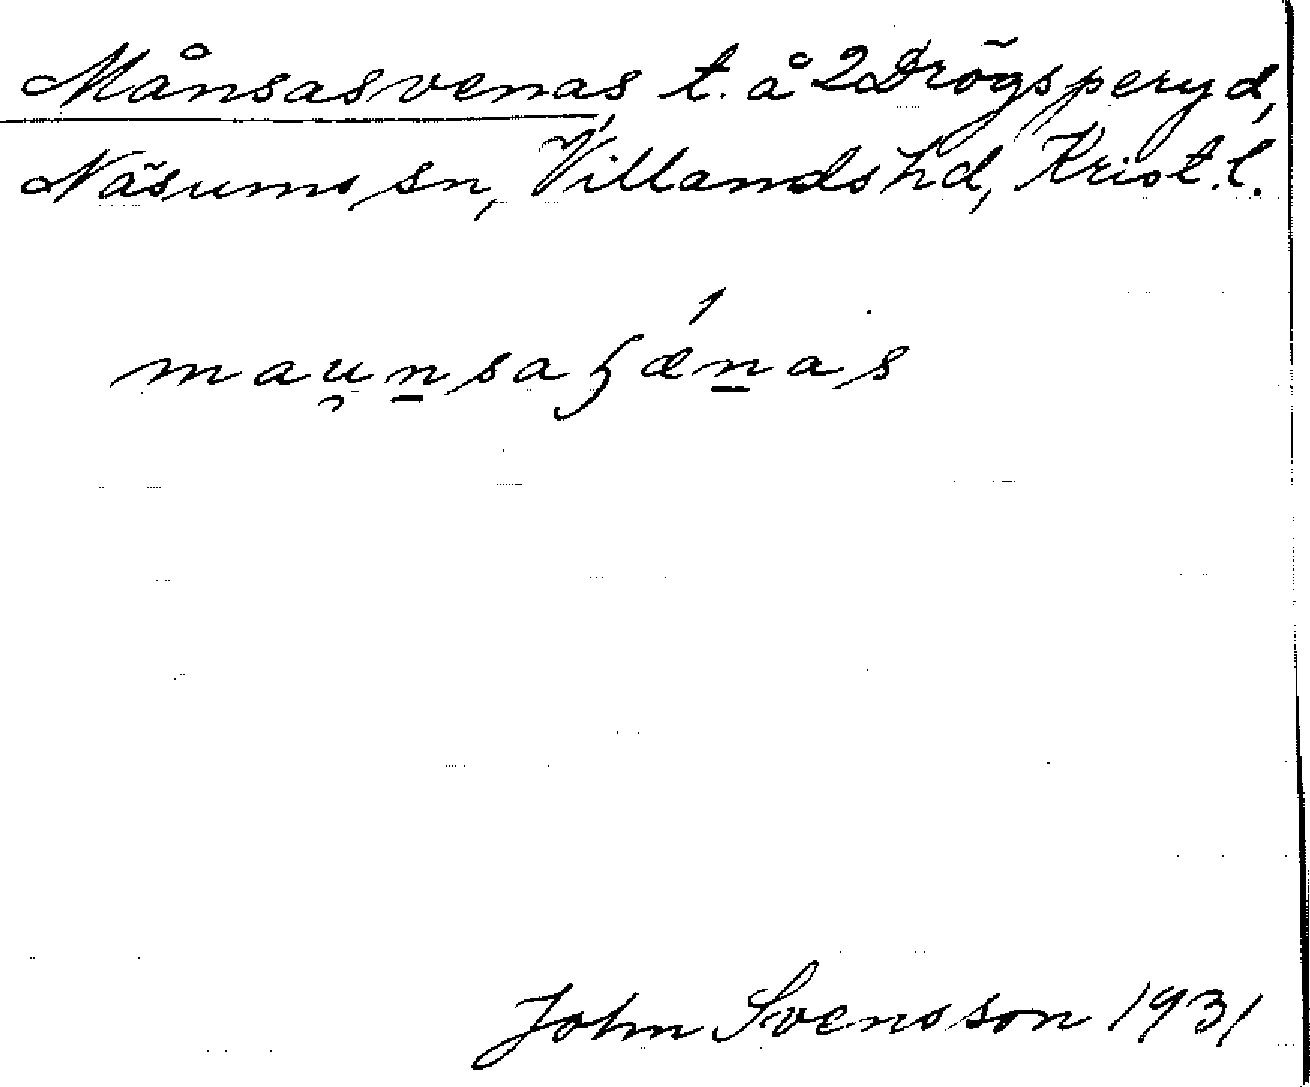 Månsasvenas, t. å 2 Drögsperyd,
Näsums sn, Villands hd, Krist. l.
mau̯n̲saꜧǽn̲as
John Svensson 1931